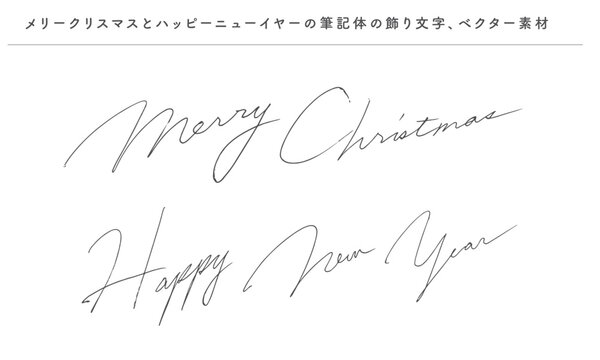 メリークリスマスとハッピーニューイヤーの筆記体の飾り文字、ベクター素材
Merry Christmas
Happy New Year